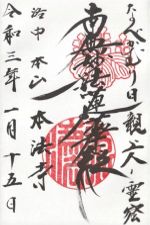 なべかむり日親上人霊窟
南無妙法蓮華経
洛中 本山 本法寺
令和三年一月十五日